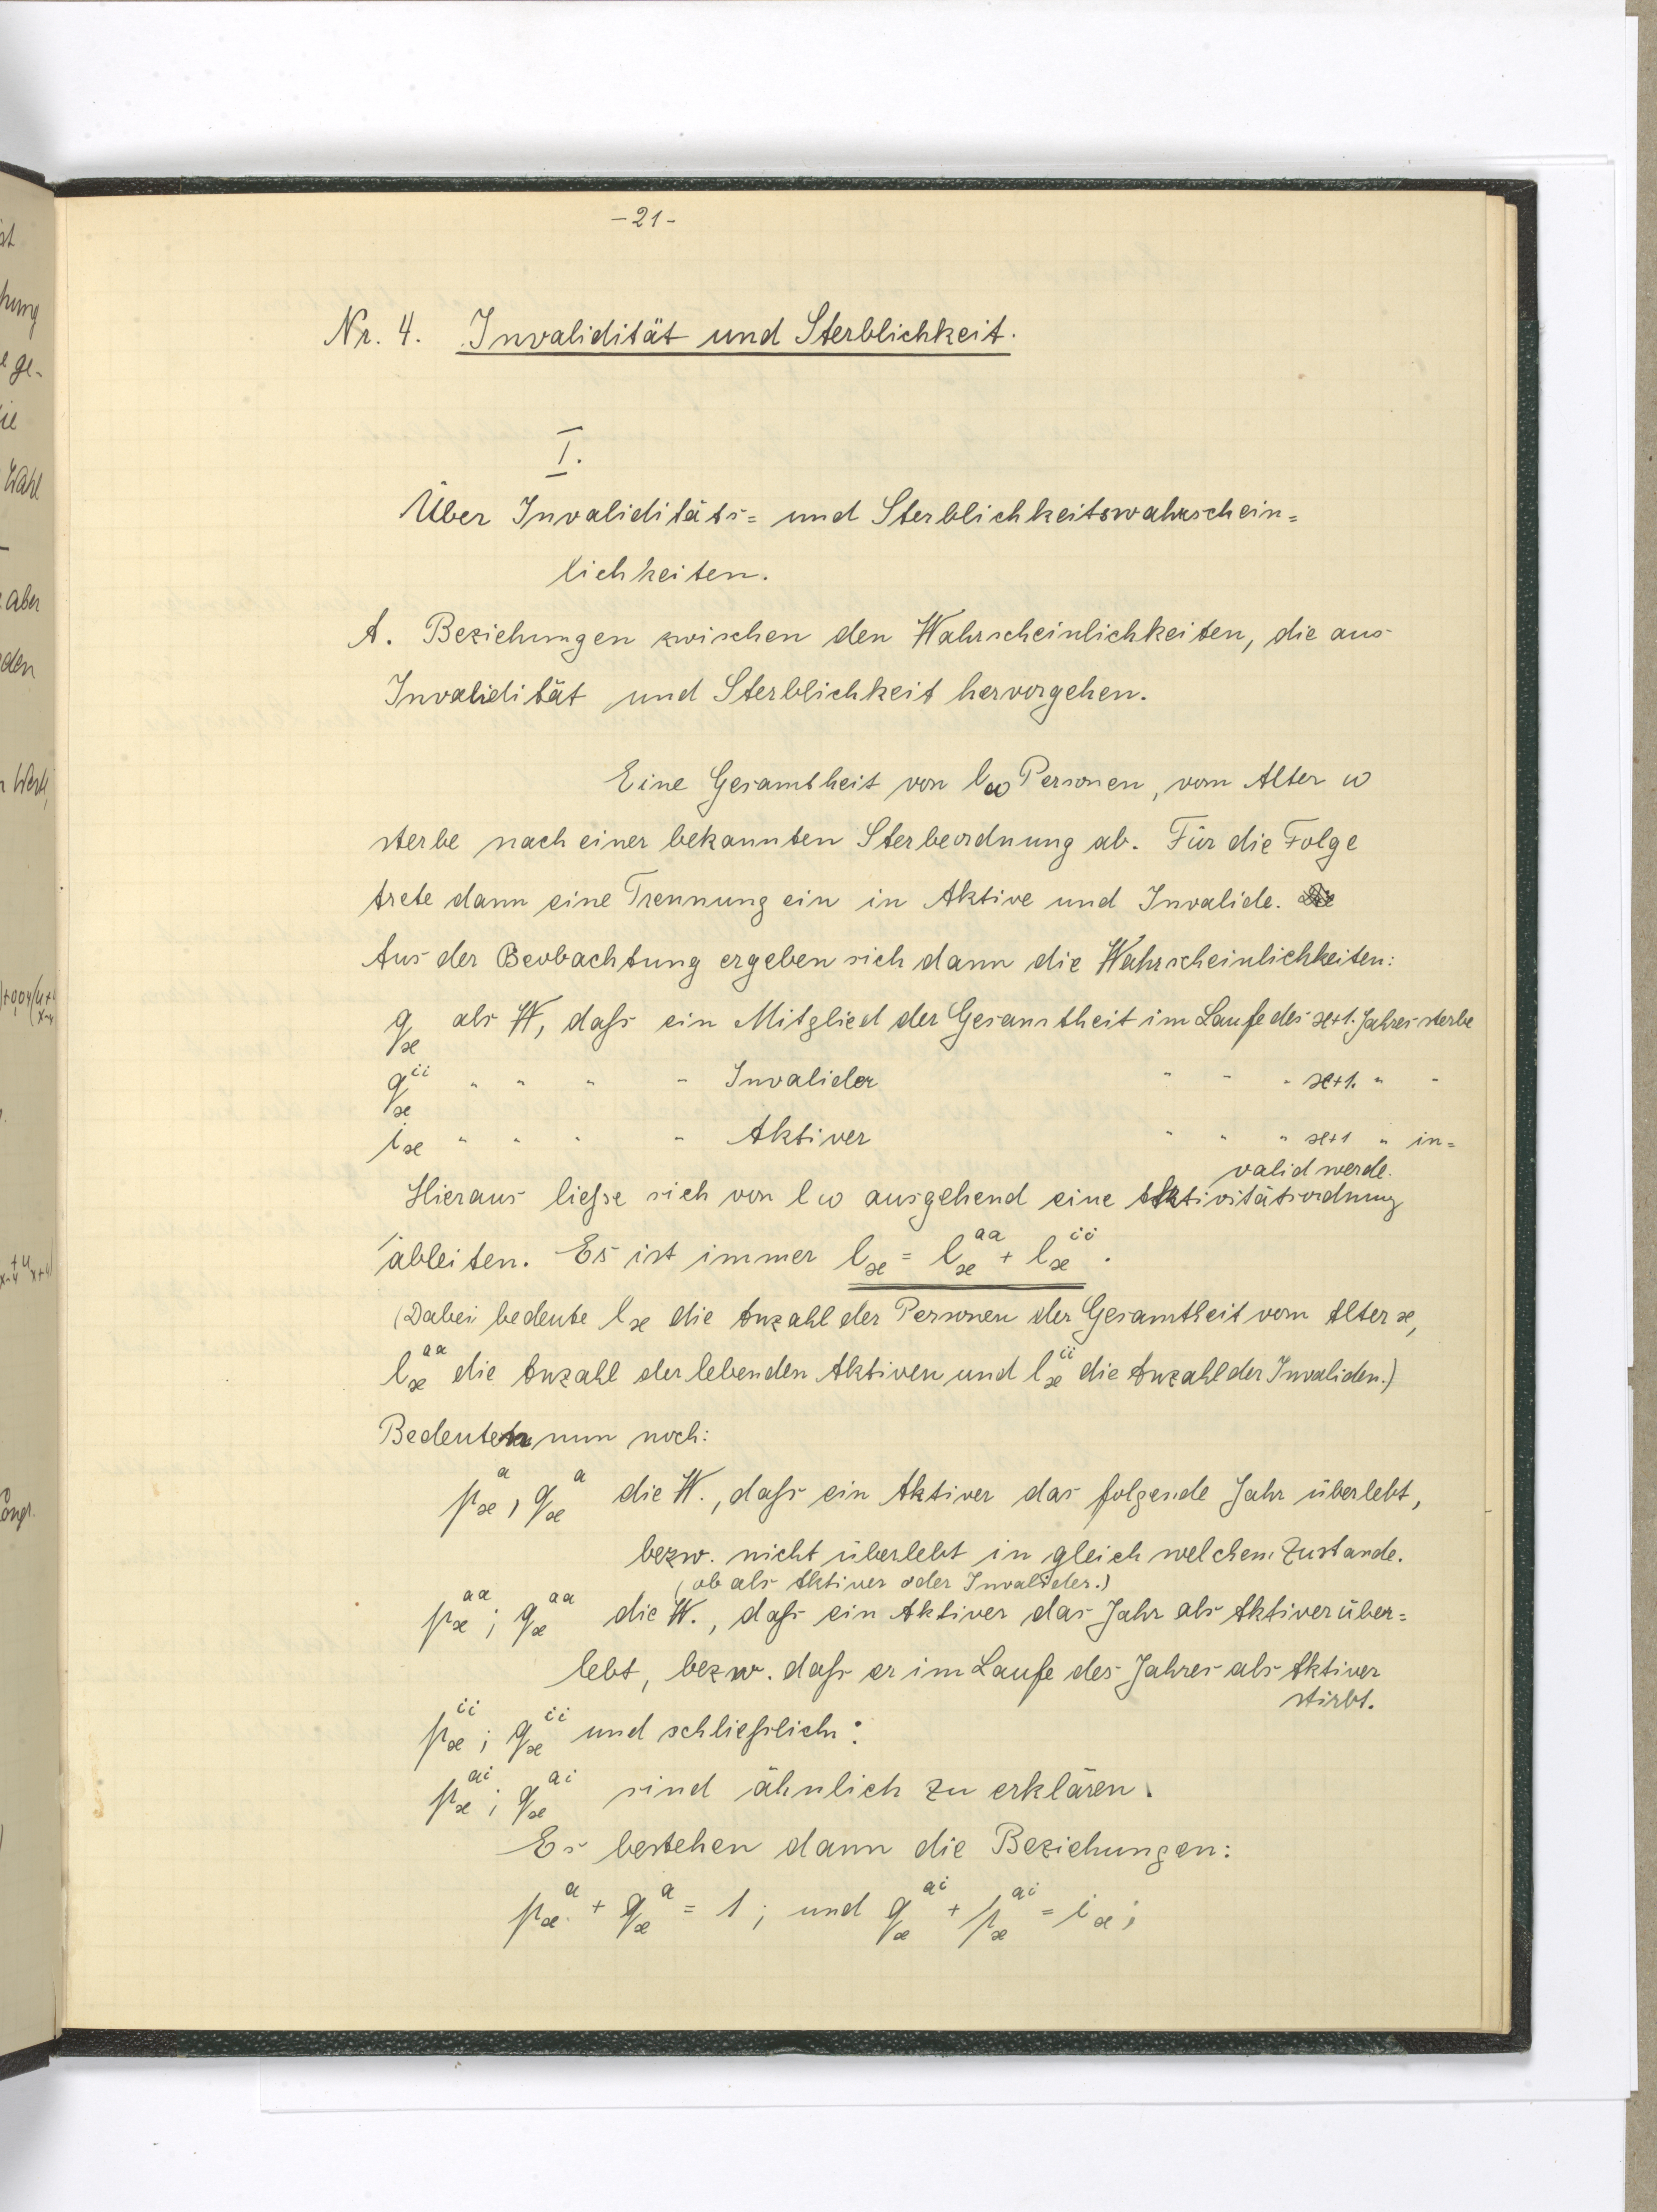 -21-
Nr. 4. Invalidität und Sterblichkeit.
I.
Über Invaliditäts= und Sterblichkeitswahrschein=
lichkeiten.
A. Beziehungen zwischen den Wahrscheinlichkeiten, die aus
Invalidität und Sterblichkeit hervorgehen.
Eine Gesamtheit von lω Personen, vom Alter ω
sterbe nach einer bekannten Sterbeordnung ab. Für die Folge
trete dann eine Trennung ein in Aktive und Invalide.
Aus der Beobachtung ergeben sich dann die Wahrscheinlichkeiten:
q_x als W, daß ein Mitglied der Gesamtheit im Laufe des x+1. Jahres sterbe
q_x^ii " " " " Invalider " " " x+1. " "
i_x " " " " Aktiver " " " x+1 " in=
valid werde.
Hieraus ließe sich von lω ausgehend eine Aktivitätsordnung
ableiten. Es ist immer l_x = l_x^aa + l_x^ii.
(Dabei bedeute l_x die Anzahl der Personen der Gesamtheit vom Alter x,
l_x^aa die Anzahl der lebenden Aktiven und l_x^ii die Anzahl der Invaliden.)
Bedeuten nun noch:
p_x^a, q_x^a die W., daß ein Aktiver das folgende Jahr überlebt,
bezw. nicht überlebt in gleich welchem Zustande.
(ob als Aktiver oder Invalider.)
p_x^aa; q_x^aa die W., daß ein Aktiver das Jahr als Aktiver über=
lebt, bezw. daß er im Laufe des Jahres als Aktiver
stirbt.
p_x^ii; q_x^ii und schließlich:
p_x^ai; q_x^ai sind ähnlich zu erklären.
Es bestehen dann die Beziehungen:
p_x^a + q_x^a = 1; und q_x^ai + p_x^ai = i_x;